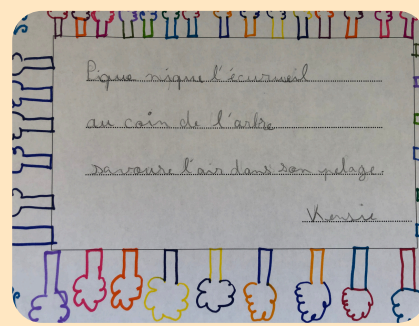 Pique nique l'écureuil
au coin de l'arbre
savoure l'air dans son pelage.
Kensie